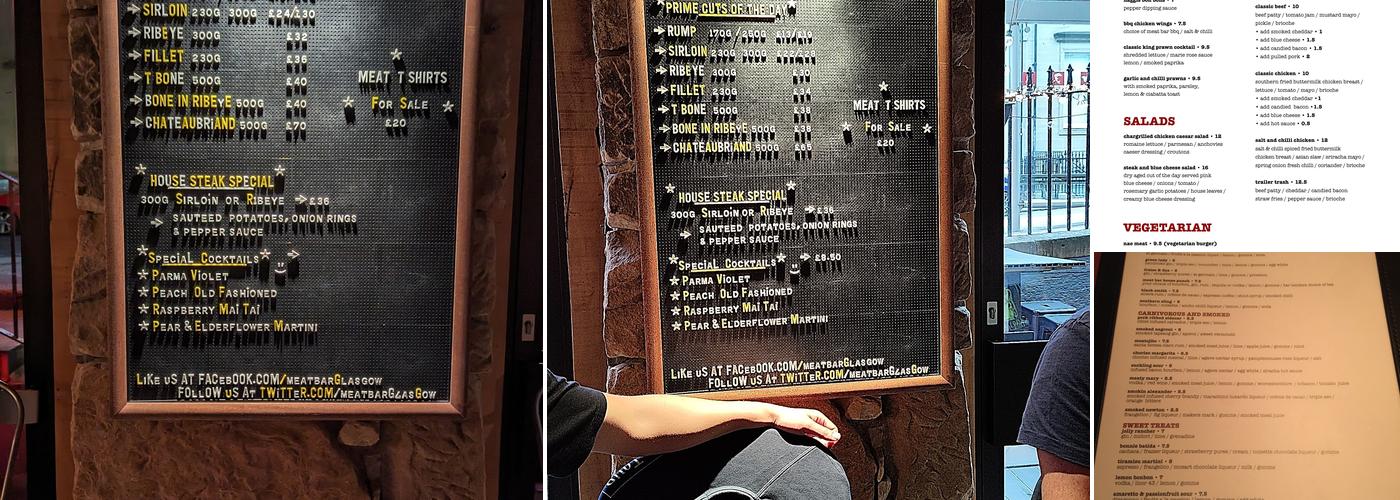 SIRLOIN 230G 300G £24/£30
RIBEYE 300G £32
FILLET 230G £36
T BONE 500G £40
BONE IN RIBEYE 500G £40
CHATEAUBRIAND 500G £70
MEAT T SHIRTS
FOR SALE
£20
HOUSE STEAK SPECIAL
300G SIRLOIN OR RIBEYE £36
SAUTEED POTATOES, ONION RINGS
& PEPPER SAUCE
SPECIAL COCKTAILS
PARMA VIOLET
PEACH OLD FASHIONED
RASPBERRY MAI TAI
PEAR & ELDERFLOWER MARTINI
LIKE US AT FACEBOOK.COM/MEATBARGLASGOW
FOLLOW US AT TWITTER.COM/MEATBARGLASGOW
PRIME CUTS OF THE DAY
RUMP 170G/250G £13/£19
SIRLOIN 230G 300G £22/£28
RIBEYE 300G £30
FILLET 230G £34
T BONE 500G £38
BONE IN RIBEYE 500G £38
CHATEAUBRIAND 500G £65
MEAT T SHIRTS
FOR SALE
£20
HOUSE STEAK SPECIAL
300G SIRLOIN OR RIBEYE £36
SAUTEED POTATOES, ONION RINGS
& PEPPER SAUCE
SPECIAL COCKTAILS £8.50
PARMA VIOLET
PEACH OLD FASHIONED
RASPBERRY MAI TAI
PEAR & ELDERFLOWER MARTINI
LIKE US AT FACEBOOK.COM/MEATBARGLASGOW
FOLLOW US AT TWITTER.COM/MEATBARGLASGOW
pepper dipping sauce
bbq chicken wings • 7.5
choice of meat bar bbq / salt & chilli
classic king prawn cocktail • 9.5
shredded lettuce / marie rose sauce
lemon / smoked paprika
garlic and chilli prawns • 9.5
with smoked paprika, parsley,
lemon & ciabatta toast
SALADS
chargrilled chicken caesar salad • 12
romaine lettuce / parmesan / anchovies
caeser dressing / croutons
steak and blue cheese salad • 16
dry aged cut of the day served pink
blue cheese / onions / tomato /
rosemary garlic potatoes / house leaves /
creamy blue cheese dressing
VEGETARIAN
nae meat • 9.5 (vegetarian burger)
classic beef • 10
beef patty / tomato jam / mustard mayo /
pickle / brioche
• add smoked cheddar • 1
• add blue cheese • 1.5
• add candied bacon • 1.5
• add pulled pork • 2
classic chicken • 10
southern fried buttermilk chicken breast /
lettuce / tomato / mayo / brioche
• add smoked cheddar •1
• add candied bacon •1.5
• add blue cheese • 1.5
• add hot sauce • 0.5
salt and chilli chicken • 12
salt & chilli spiced fried buttermilk
chicken breast / asian slaw / sriracha mayo /
spring onion fresh chilli / coriander / brioche
trailer trash • 12.5
beef patty / cheddar / candied bacon
straw fries / pepper sauce / brioche
CARNIVOROUS AND SMOKED
smoked negroni
meatojito
chorizo margarita
suckling sour
meaty mary
vodka / red wine / smoked meat juice / lemon / gomme / worcestershire / tobasco / tomato juice
smokin alexander
orange bitters
smoked newton
frangelico / fig liqueur / makers mark / gomme / smoked meat juice
SWEET TREATS
jolly rancher • 7
gin / midori / lime / grenadine
bonnie batida • 7.5
tiramisu martini
espresso / frangelico / mozart chocolate liqueur / milk / gomme
lemon bonbon • 7
vodka / licor 43 / lemon / gomme
amaretto & passionfruit sour • 7.5